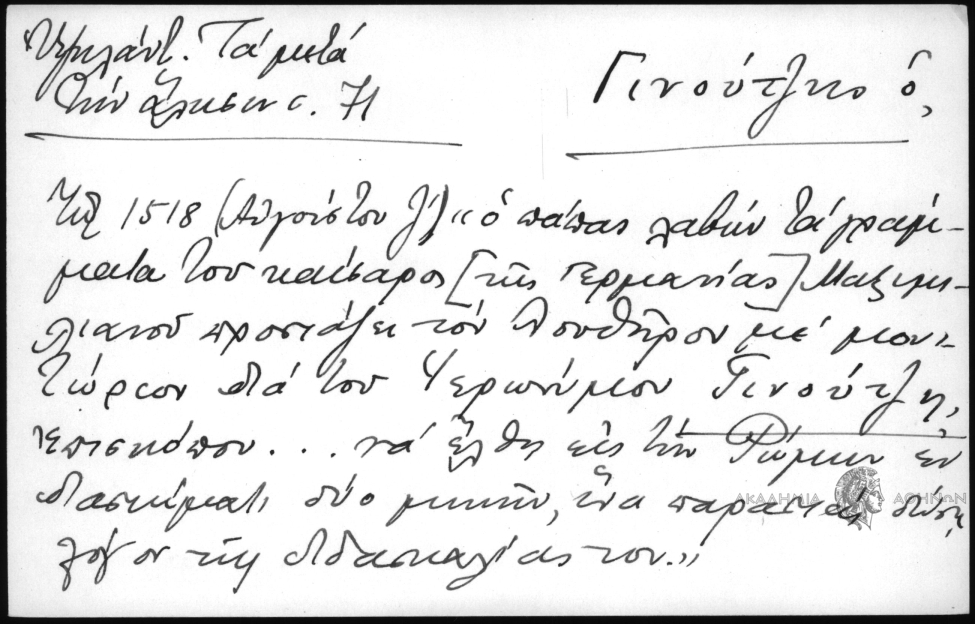 Ὑψηλάντ. Τά μετά
τήν ἅλωσιν σ. 71
Γινούτζης ὁ,
Τῷ 1518 (Αὐγούστου ζ′) «ὁ πάπας λαβών τά γράμ-
ματα τοῦ καίσαρος [τῆς Γερμανίας] Μαξιμι-
λιανοῦ προστάζει τόν Λουθῆρον μέ μονι-
τώριον διά τοῦ Ἱερωνύμου Γινούτζη,
ἐπισκόπου... νά ἔλθῃ εἰς τήν Ῥώμην ἐν
διαστήματι δύο μηνῶν, ἵνα παραστάς δώσῃ
λόγον τῆς διδασκαλίας του.»
ΑΚΑΔΗΜΙΑ ΑΘΗΝΩΝ